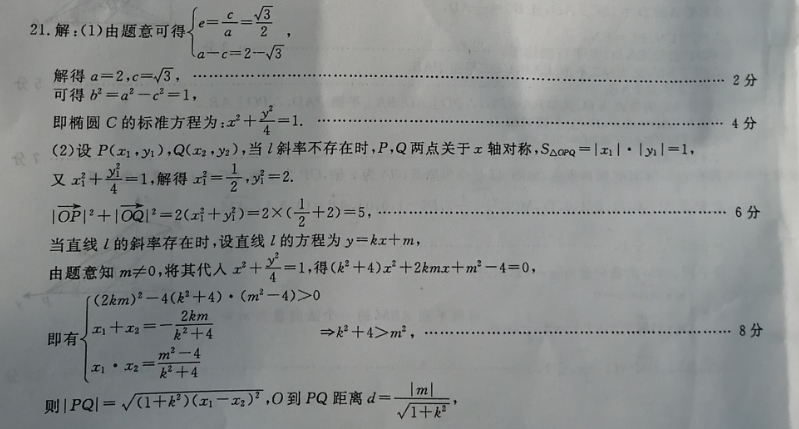 21.解:(1)由题意可得{e=c/a=√3/2, a-c=2-√3
解得 a=2,c=√3, …… 2分
可得 b²=a²-c²=1,
即椭圆 C 的标准方程为:x²+y²/4=1. …… 4分
(2)设 P(x₁,y₁),Q(x₂,y₂),当 l 斜率不存在时,P,Q 两点关于 x 轴对称,S△OPQ=|x₁|·|y₁|=1,
又 x₁²+y₁²/4=1,解得 x₁²=1/2,y₁²=2.
|OP→|²+|OQ→|²=2(x₁²+y₁²)=2×(1/2+2)=5, …… 6分
当直线 l 的斜率存在时,设直线 l 的方程为 y=kx+m,
由题意知 m≠0,将其代人 x²+y²/4=1,得(k²+4)x²+2kmx+m²-4=0,
即有{(2km)²-4(k²+4)·(m²-4)>0
x₁+x₂=-2km/(k²+4) ⇒k²+4>m², …… 8分
x₁·x₂=(m²-4)/(k²+4)
则|PQ|=√((1+k²)(x₁-x₂)²),O 到 PQ 距离 d=|m|/√(1+k²),